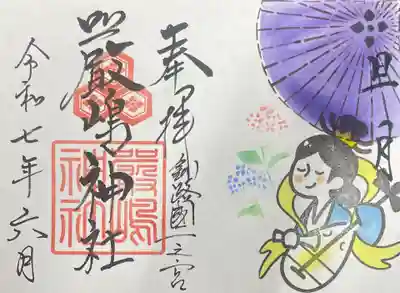 旦月
奉拝
釧路國一之宮
嚴嶋神社
嚴嶋
神社
令和七年六月